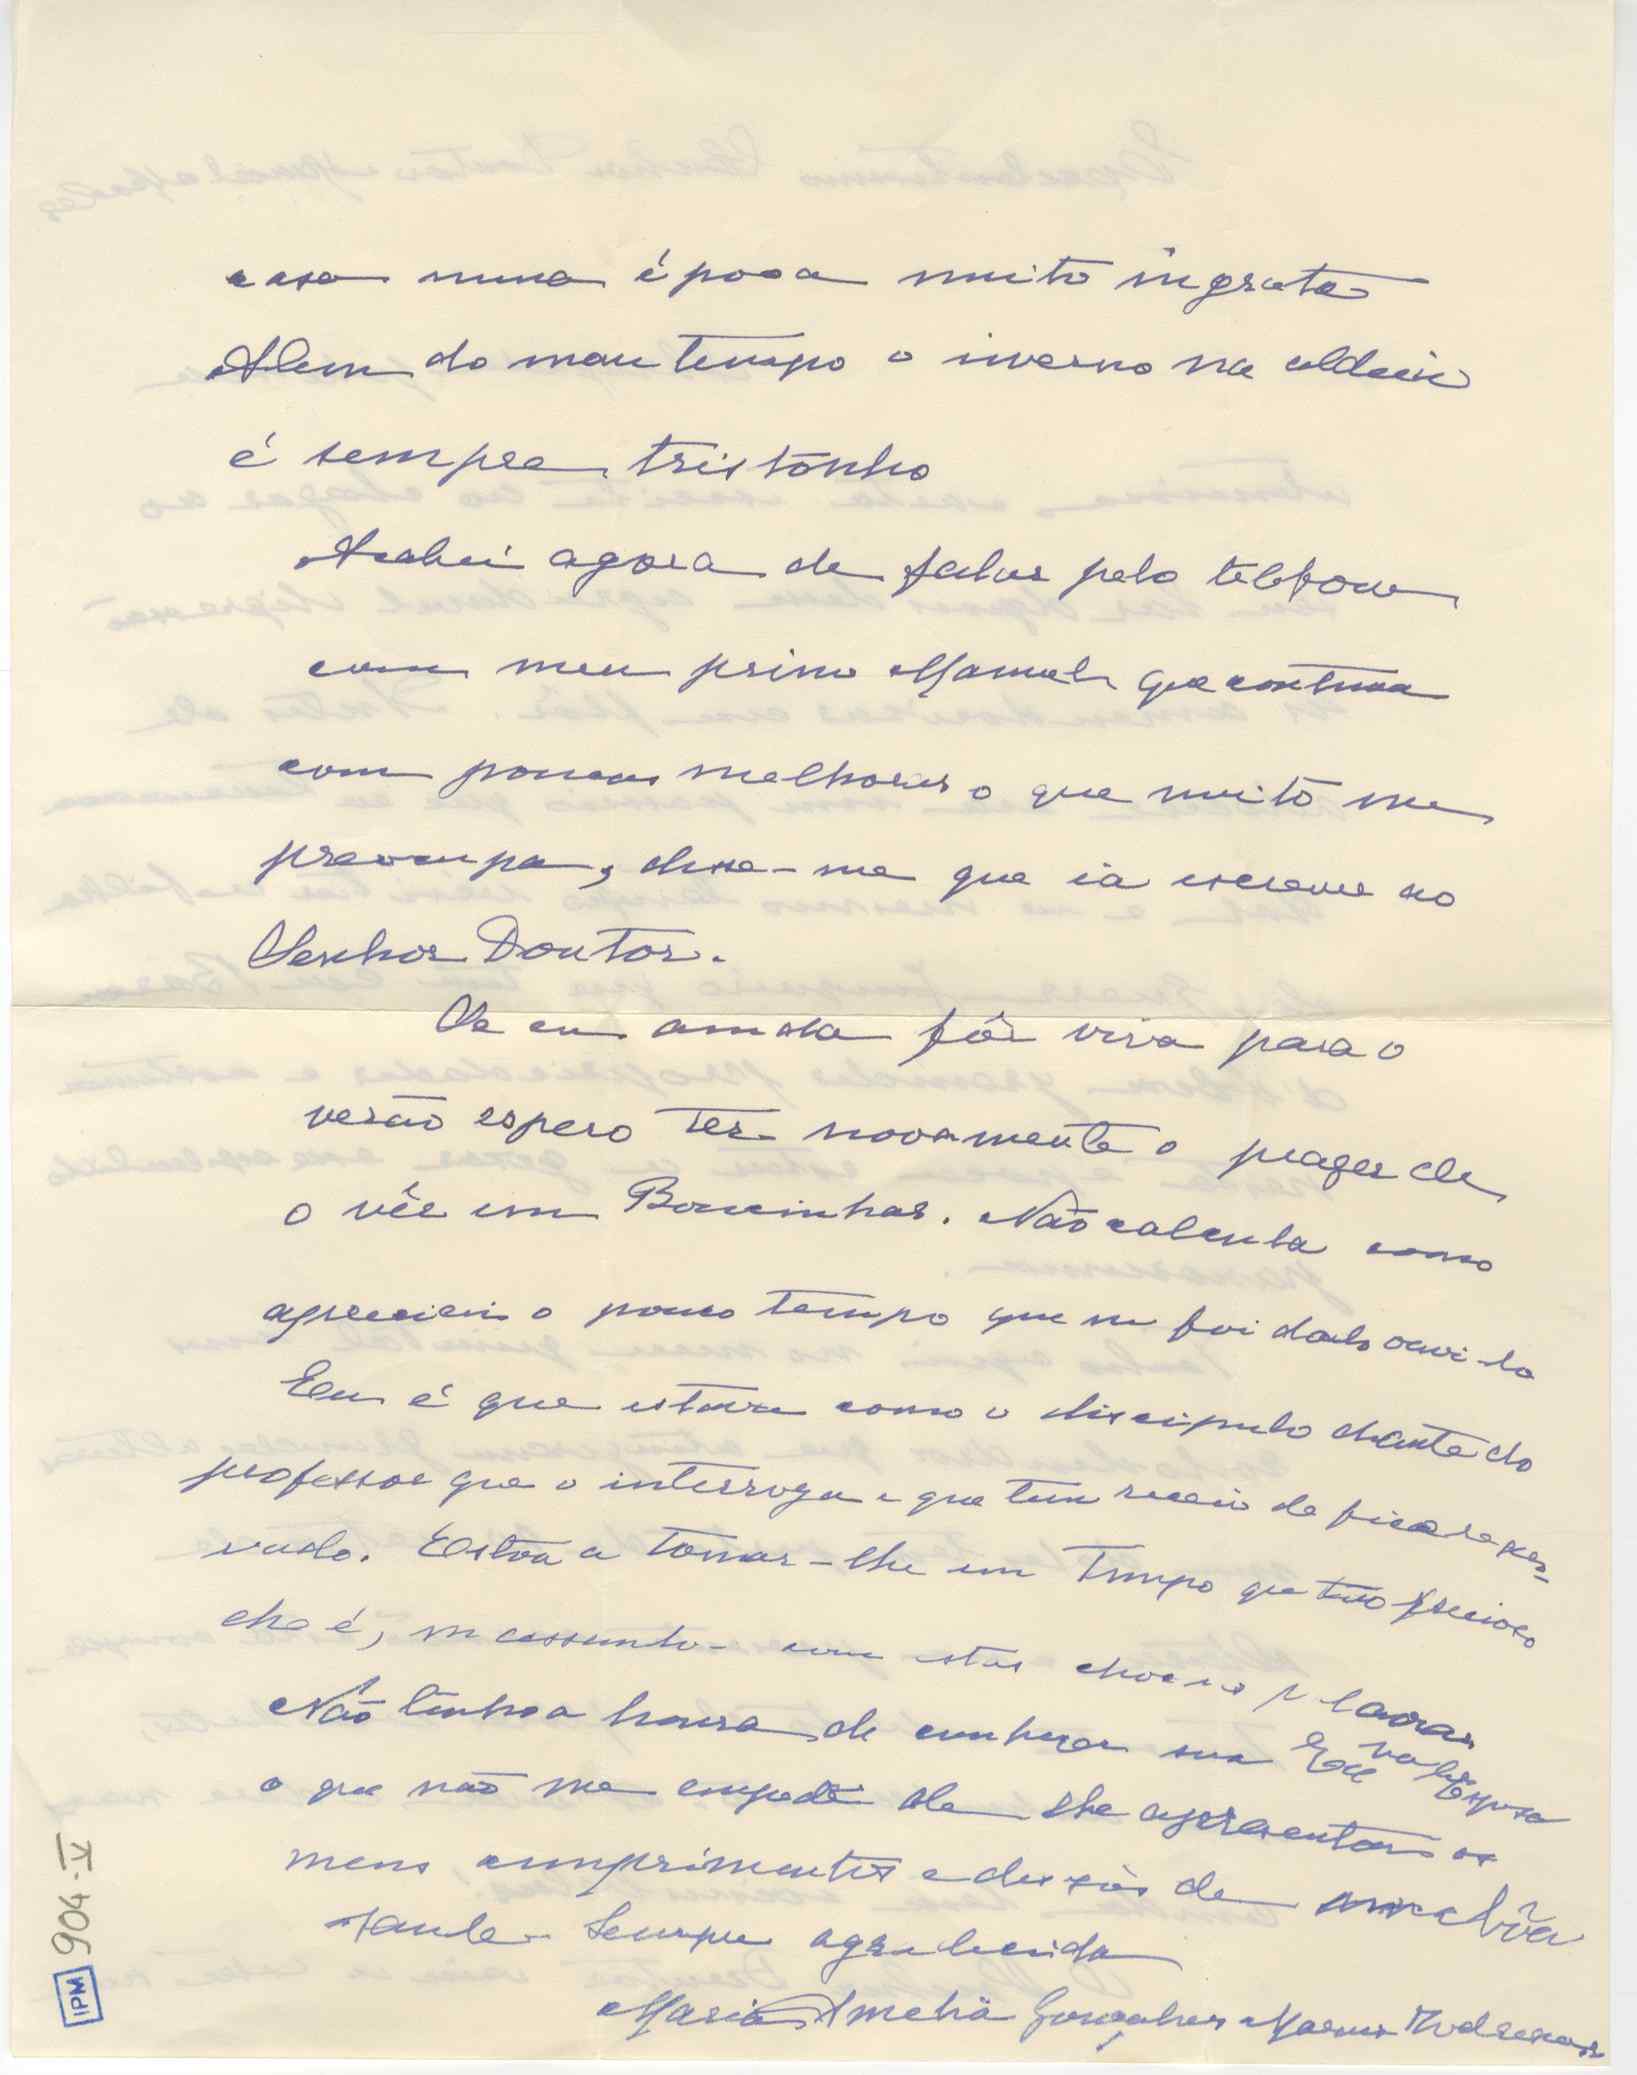 casa numa época muito ingrata
Alem do mau tempo o inverno na aldeia
é sempre tristonho
Acabei agora de falar pelo telefone
com meu primo Manuel que continua
com poucas melhoras o que muito me
preocupa, disse-me que ia escrever ao
Senhor Doutor.
Se eu ainda fôr viva para o
verão espero ter novamente o prazer de
o vêr em Boucinhas. Não calcula como
apreciei o pouco tempo que me foi dado ouvi-lo
Eu é que estava como o discipulo diante do
professor que o interroga e que tem receio de ficar
vado. Estou a tomar-lhe um tempo que tão precioso
lhe é, com estas
Não tenho a honra de conhecer sua Exc Esposa
o que não me empede de lhe apresentar os
meus cumprimentos e desejos de bôa
saude. Sempre agradecida
Maria Amelia Gonçalves
904-V
IPM